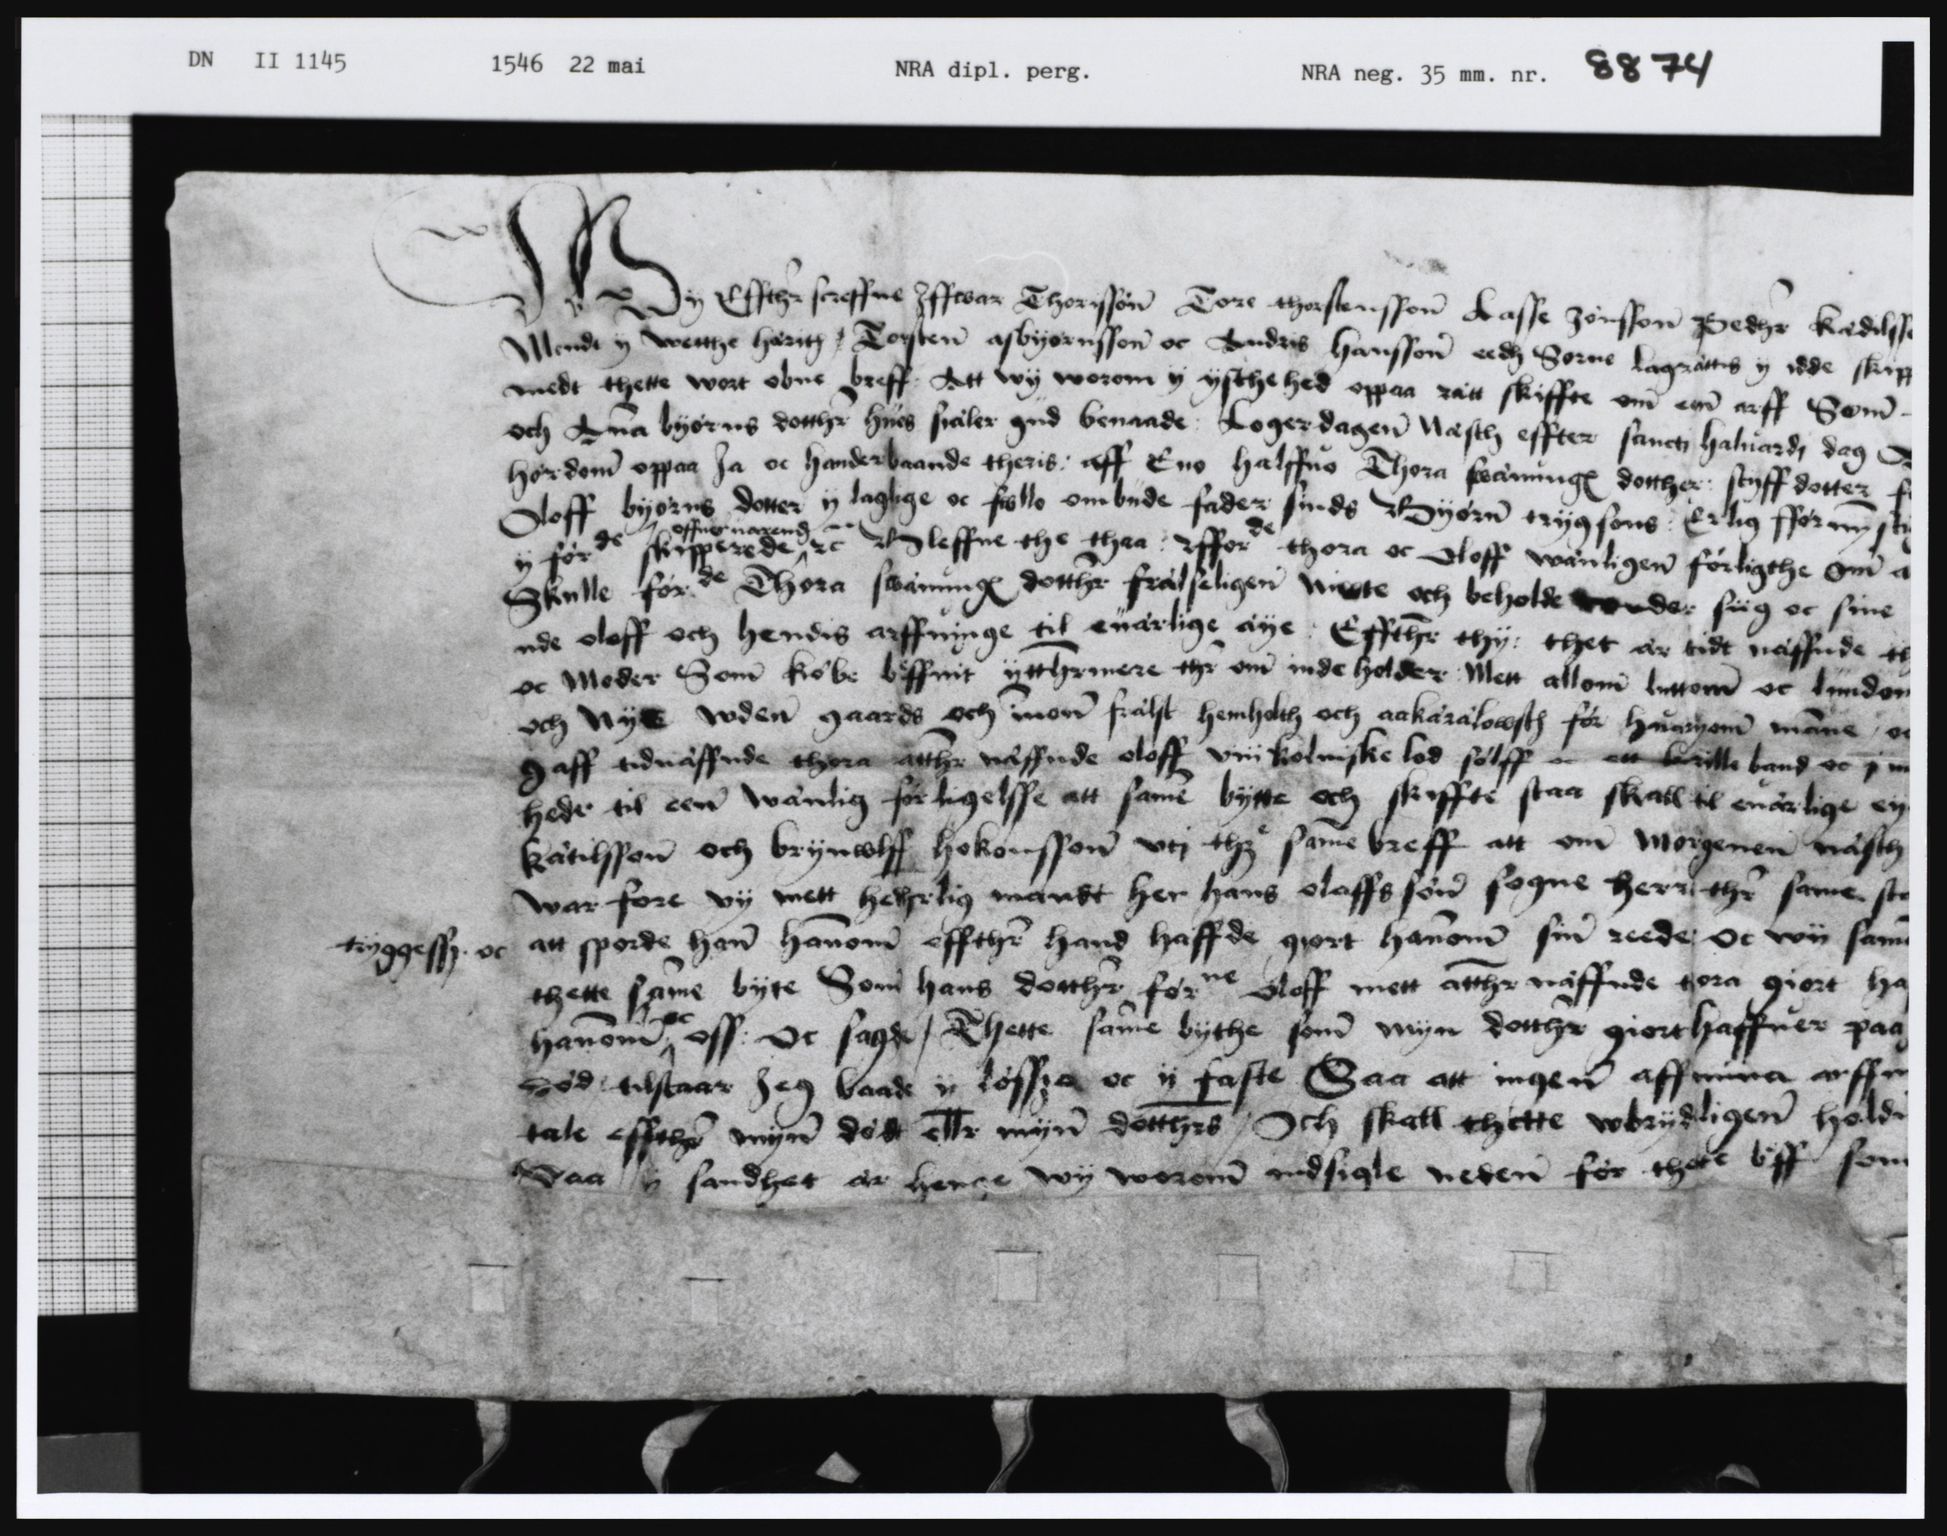 DN II 1145 1546 22 mai NRA dipl. perg. NRA neg. 35 mm. nr. 8874
Wy Effthr screffne Iffwar Thorissøn̄ Tore thorstenssøn̄ Lasse Jönssøn̄ Pedhr Kædilss
Mendt y wetthe häritz / Torsten̄ asbyørnssøn̄ oc Andris hanssøn̄ eedz Sorne lagrättis y idde skip
medt thette wort obne breff: Att wy worom y ysthehed oppaa rätt skiffte om̄ em̄ arff Som̄
och An̄a byørns dotthr hues siäler gud benaade: Logerdagen̄ Næsth effter sancti haluardj dag
hør dom̄ oppaa Ja oc handerbaande theris: aff Eno halffuo Thora swänungx dotther: styff dotter
Oloff byørns dotter y laglige oc fullo ombude fader sinds Byörn̄ trygsons: Erlig
y forde skipperede offueruarendz rc Bleffue the thaa: Efforde thora oc Oloff wänligen̄ förligthe Om̄ a
Skulle forde Thora swänungx dotthr frälseligen̄ Niutte och beholde vnder siig oc sine
nde oloff och hendis arffninge til euärlige äye: Effthr thy: thet är tidt näffnde th
oc Moder Som̄ købe bffuit ytthrmere thr om̄ inde holder: Mett allom̄ luttom̄ oc lundom
och Nyie vden̄ gaards och in̄on̄ frälst hemholth och aakäralowsth før huaryom̄ man̄e oc
gaff tidnäffnde thora atthr näffnde oloff viij kolmiske lod sølff oc ett krille band oc j m
hede til een̄ wänlig förligelsse att same bytte och skiffte staa skall til euärlige ey
kätilssøn̄ och brynwlff hokonssøn̄ vtj thz same breff att om̄ Morgenen nästh
war fore vy mett hedhrlig mandt her hans olaffs søn̄ sogne herr thr same st
tryggessz. oc att sporde han̄ han̄om̄ effthr hand haffde giort han̄om̄ sin̄ reede: Oc wij sam
thette same byte Som̄ hans dotthr forne Oloff mett atthr näffnde tora giort ha
han̄om̄ oc oss: Oc sagde / Thette same bythe som̄ myn dotthr giort haffuer paa
død tilstaar Jeg baade y løssze oc y faste Saa att ingen̄ aff mina arffu
tale effthr myn̄ dødt ellr myn̄ dotthrs / Och skall thette wbrydligen̄ holdi
Paa y sandhet är henge wy worom̄ indsigle neden̄ før thete bff som